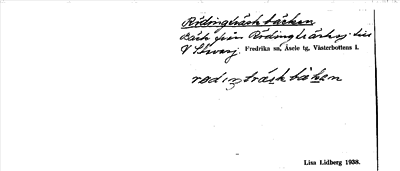 Rödingträskbäcken
Bäck från Rödingträsksj. till
V Stavsj. Fredrika sn, Åsele tg, Västerbottens l.
rødɩŋtráskbäkən
Lisa Lidberg 1938.